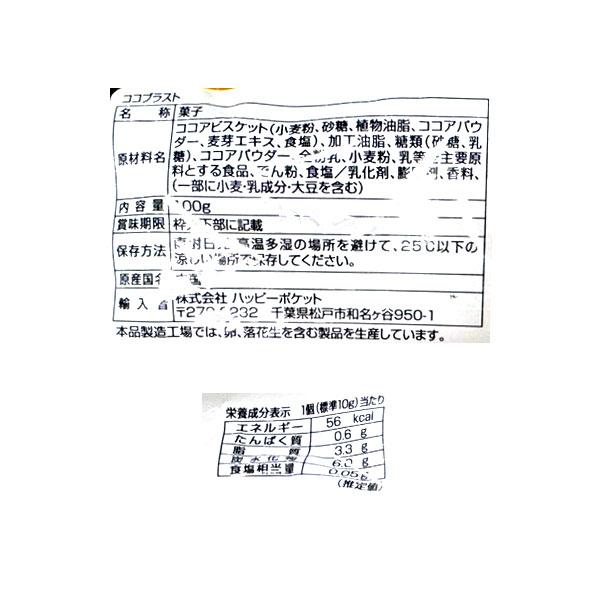 ココブラスト
名 称 菓子
原材料名 ココアビスケット(小麦粉、砂糖、植物油脂、ココアパウ
ダー、麦芽エキス、食塩)、加工油脂、糖類(砂糖、乳
糖)、ココアパウダー、全粉乳、小麦粉、乳等を主要原
料とする食品、でん粉、食塩/乳化剤、膨張剤、香料、
(一部に小麦・乳成分・大豆を含む)
内容量 100g
賞味期限 枠外下部に記載
保存方法 直射日光、高温多湿の場所を避けて、25℃以下の
涼しい場所で保存してください。
原産国名
輸入者 株式会社 ハッピーポケット
〒270-2232 千葉県松戸市和名ヶ谷950-1
本品製造工場では、卵、落花生を含む製品を生産しています。
栄養成分表示 1個(標準10g)当たり
エネルギー 56 kcal
たんぱく質 0.6 g
脂質 3.3 g
炭水化物 6.0 g
食塩相当量 0.05g
(推定値)